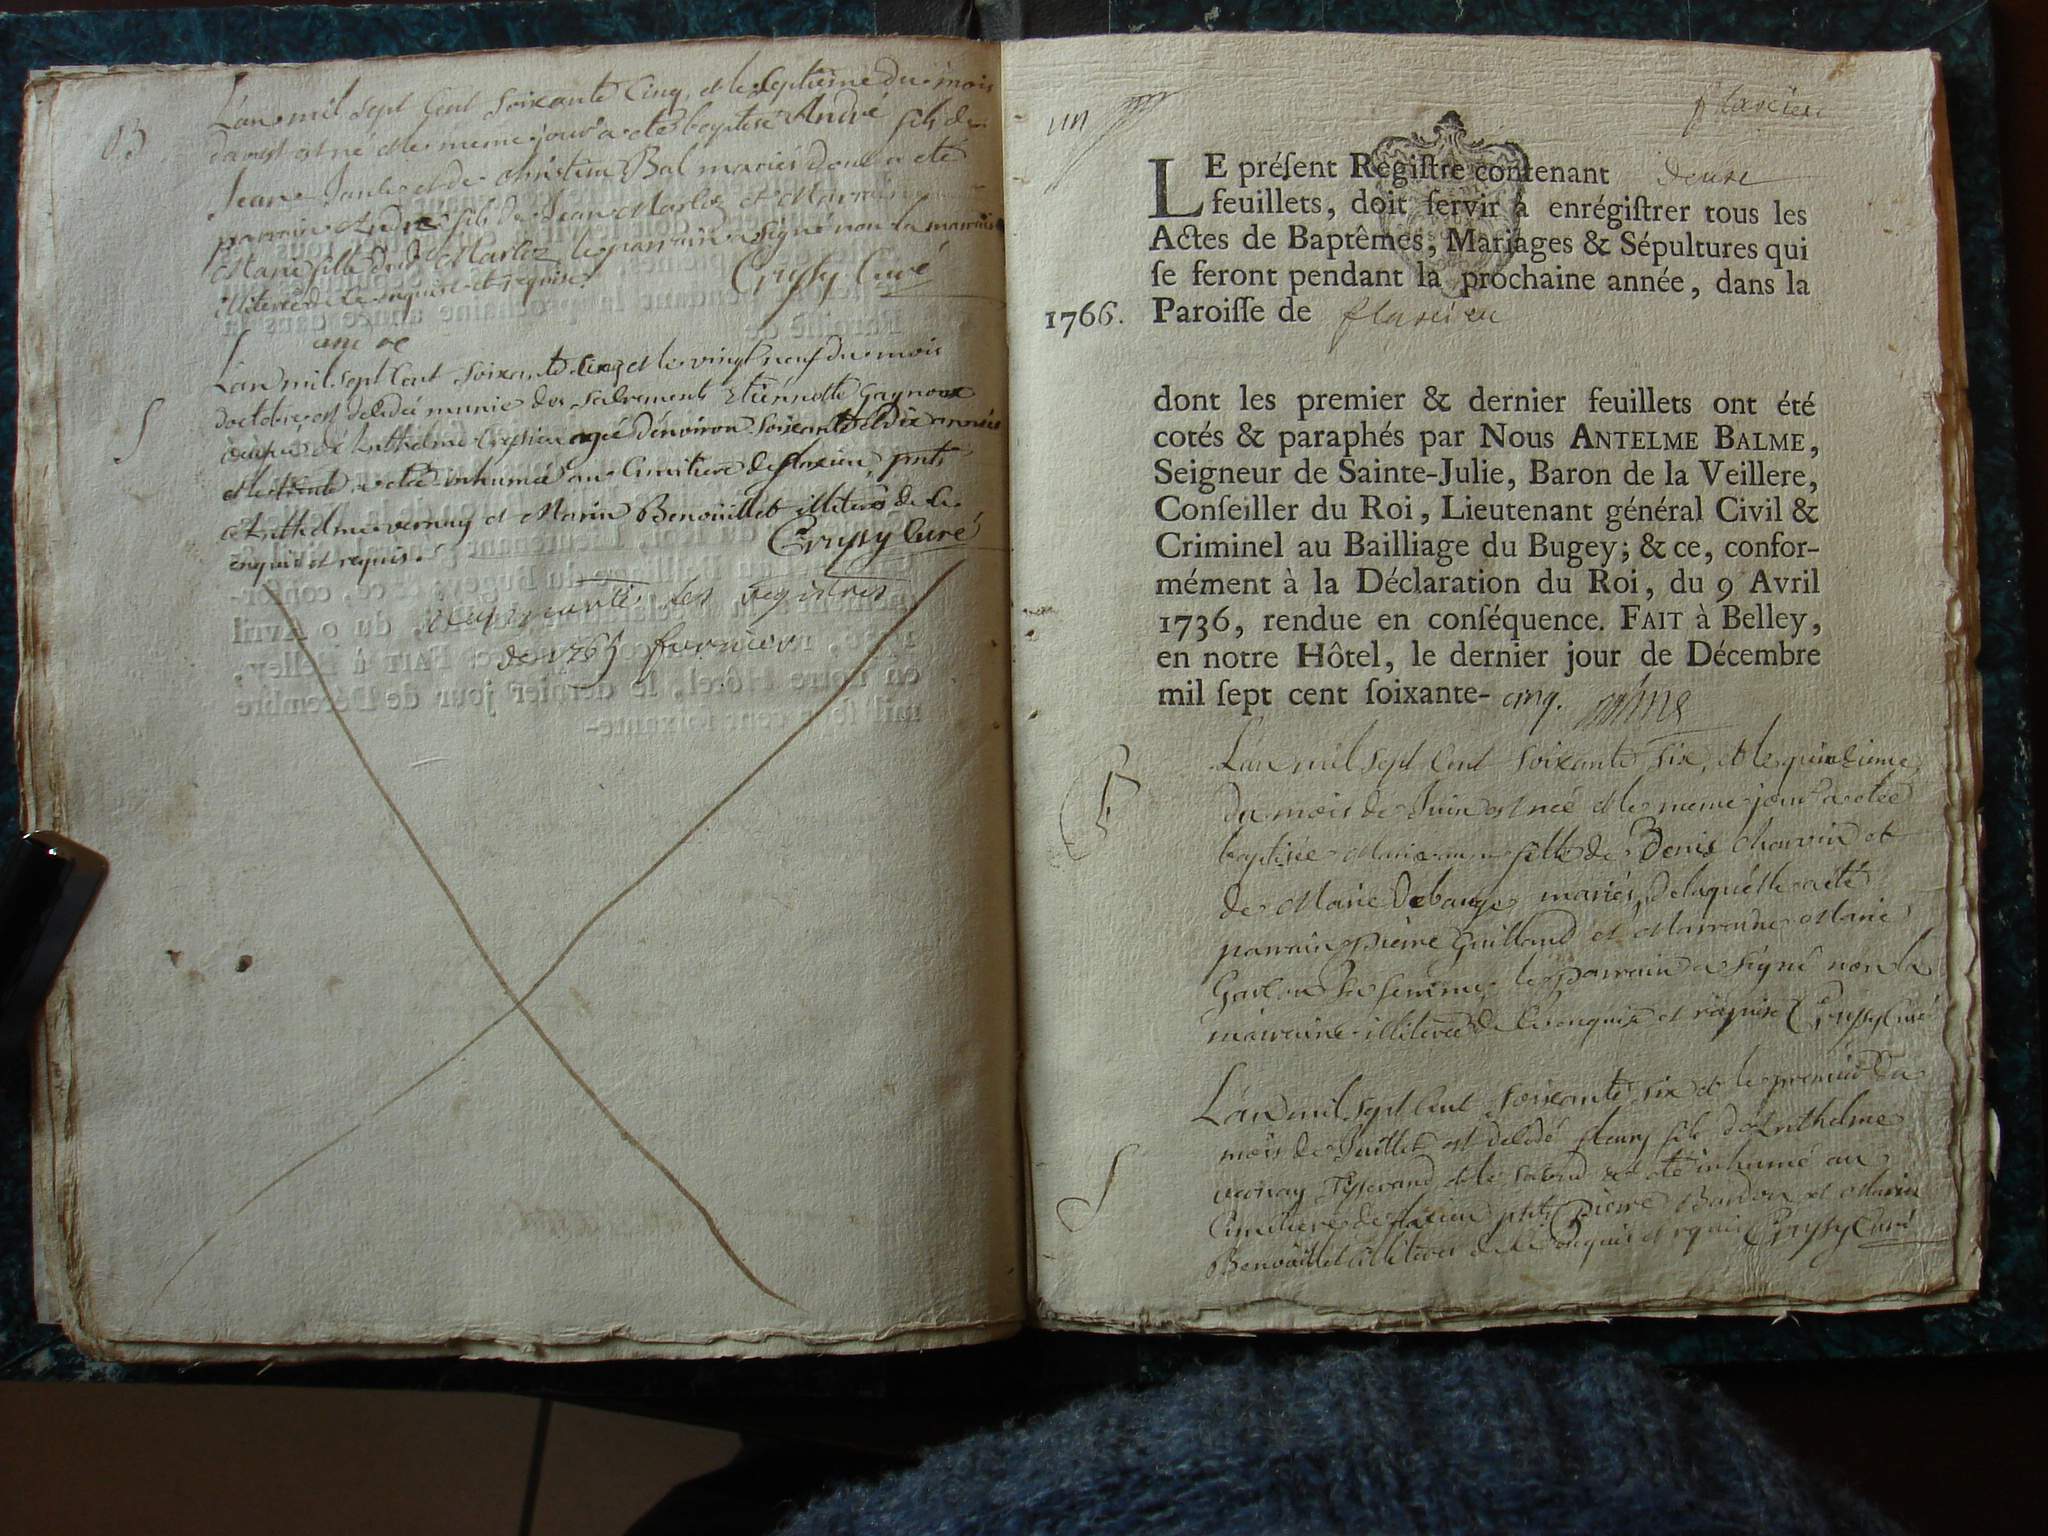 B
L'an mil sept cent soixante cinq, et le septieme du mois
d'aoust est né et le meme jour a eté baptisé André fils de
Jean et de christine Bal mariés dont a eté
parrain André fils de Jean Marloz et Marraine
Marie fille dud Marloz le parrain a signé non la marraine
illiteree de ce enquise et requise. Crussy Curé
S
L'an mil sept cent soixante cinq et le vingt neuf du mois
d'octobre est decedée munie des sacrements Etiennette Gagnoux
veuve de Anthelme agée d'environ soixante et dix années
et le trente a eté inhumée au cimitiere de flaxieu, pnts
Anthelme vernay et Marin Benouillet illiterés de ce
enquis et requis. Crussy Curé
les registres
de 1765 furnier
un
flaxieu
LE préſent Regiſtre contenant deux
feuillets, doit ſervir à enrégiſtrer tous les
Actes de Baptêmes, Mariages & Sépultures qui
ſe feront pendant la prochaine année, dans la
1766. Paroiſſe de flaxieu
dont les premier & dernier feuillets ont été
cotés & paraphés par Nous ANTELME BALME,
Seigneur de Sainte-Julie, Baron de la Veillere,
Conſeiller du Roi, Lieutenant général Civil &
Criminel au Bailliage du Bugey; & ce, confor-
mément à la Déclaration du Roi, du 9 Avril
1736, rendue en conſéquence. FAIT à Belley,
en notre Hôtel, le dernier jour de Décembre
mil ſept cent ſoixante-cinq. Balme
B
L'an mil sept cent soixante six, et le quinzieme
du mois de Juin est née et le meme jour a etée
baptisée Marie fille de Denis Chauvin et
de Marie Debauge mariés, de laquélle a eté
parrain pierre Guilland et Marraine Marie
sa femme le parrain a signé non la
marraine illiteree de ce enquise et requise Crussy Curé
S
L'an mil sept cent soixante six et le premier du
mois de Juillet est decedé fleury fils d'Anthelme
vernay Tisserand et le second a eté inhumé au
Cimitiere de flaxieu pnts Pierre Bardon et Marin
Benouillet illiterés de ce enquis et requis Crussy Curé